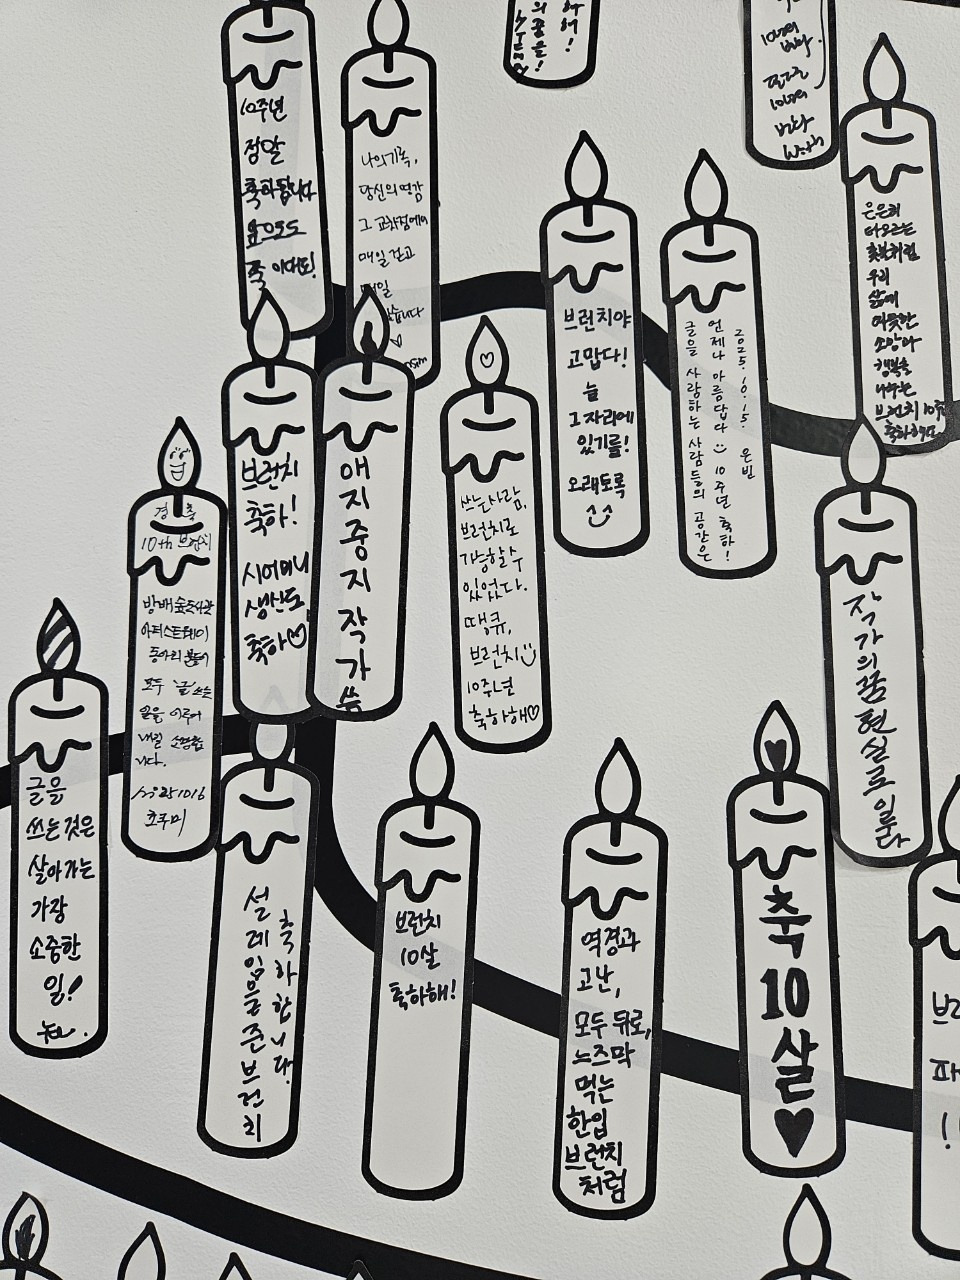 10주년
정말
축하합니다
쭉 이대로!
나의 기록,
당신의 영감
그 교차점에서
매일 걷고
매일
습니다
10년의
10년의
with
은은히
타오르는
촛불처럼
우리
삶에
따뜻한
소망과
행복을
나누는
브런치 10주년
축하해요
브런치야
고맙다!
늘
그 자리에
있기를!
오래토록
2025.10.15. 은빈
언제나 아름답다 :) 10주년 축하!
글을 사랑하는 사람들의 공간은
브런치
축하!
시어머니
생신도
축하♡
애
지
중
지
작
가
쓰는 사람,
브런치로
가능할 수
있었다.
땡큐,
브런치
10주년
축하해♡
경 축
10th 브런치
방배숲도서관
아티스트웨이
동아리 분들이
모두 '글' 쓰는
꿈을 이루어
니다.
글을
쓰는 것은
살아가는
가장
소중한
일!
작가의 꿈 현실로 이룬다
축하합니다.
설레임을 준 브런치
브런치
10살
축하해!
역경과
고난,
모두 뒤로,
느즈막
먹는
한입
브런치
처럼
축
10
살
♥